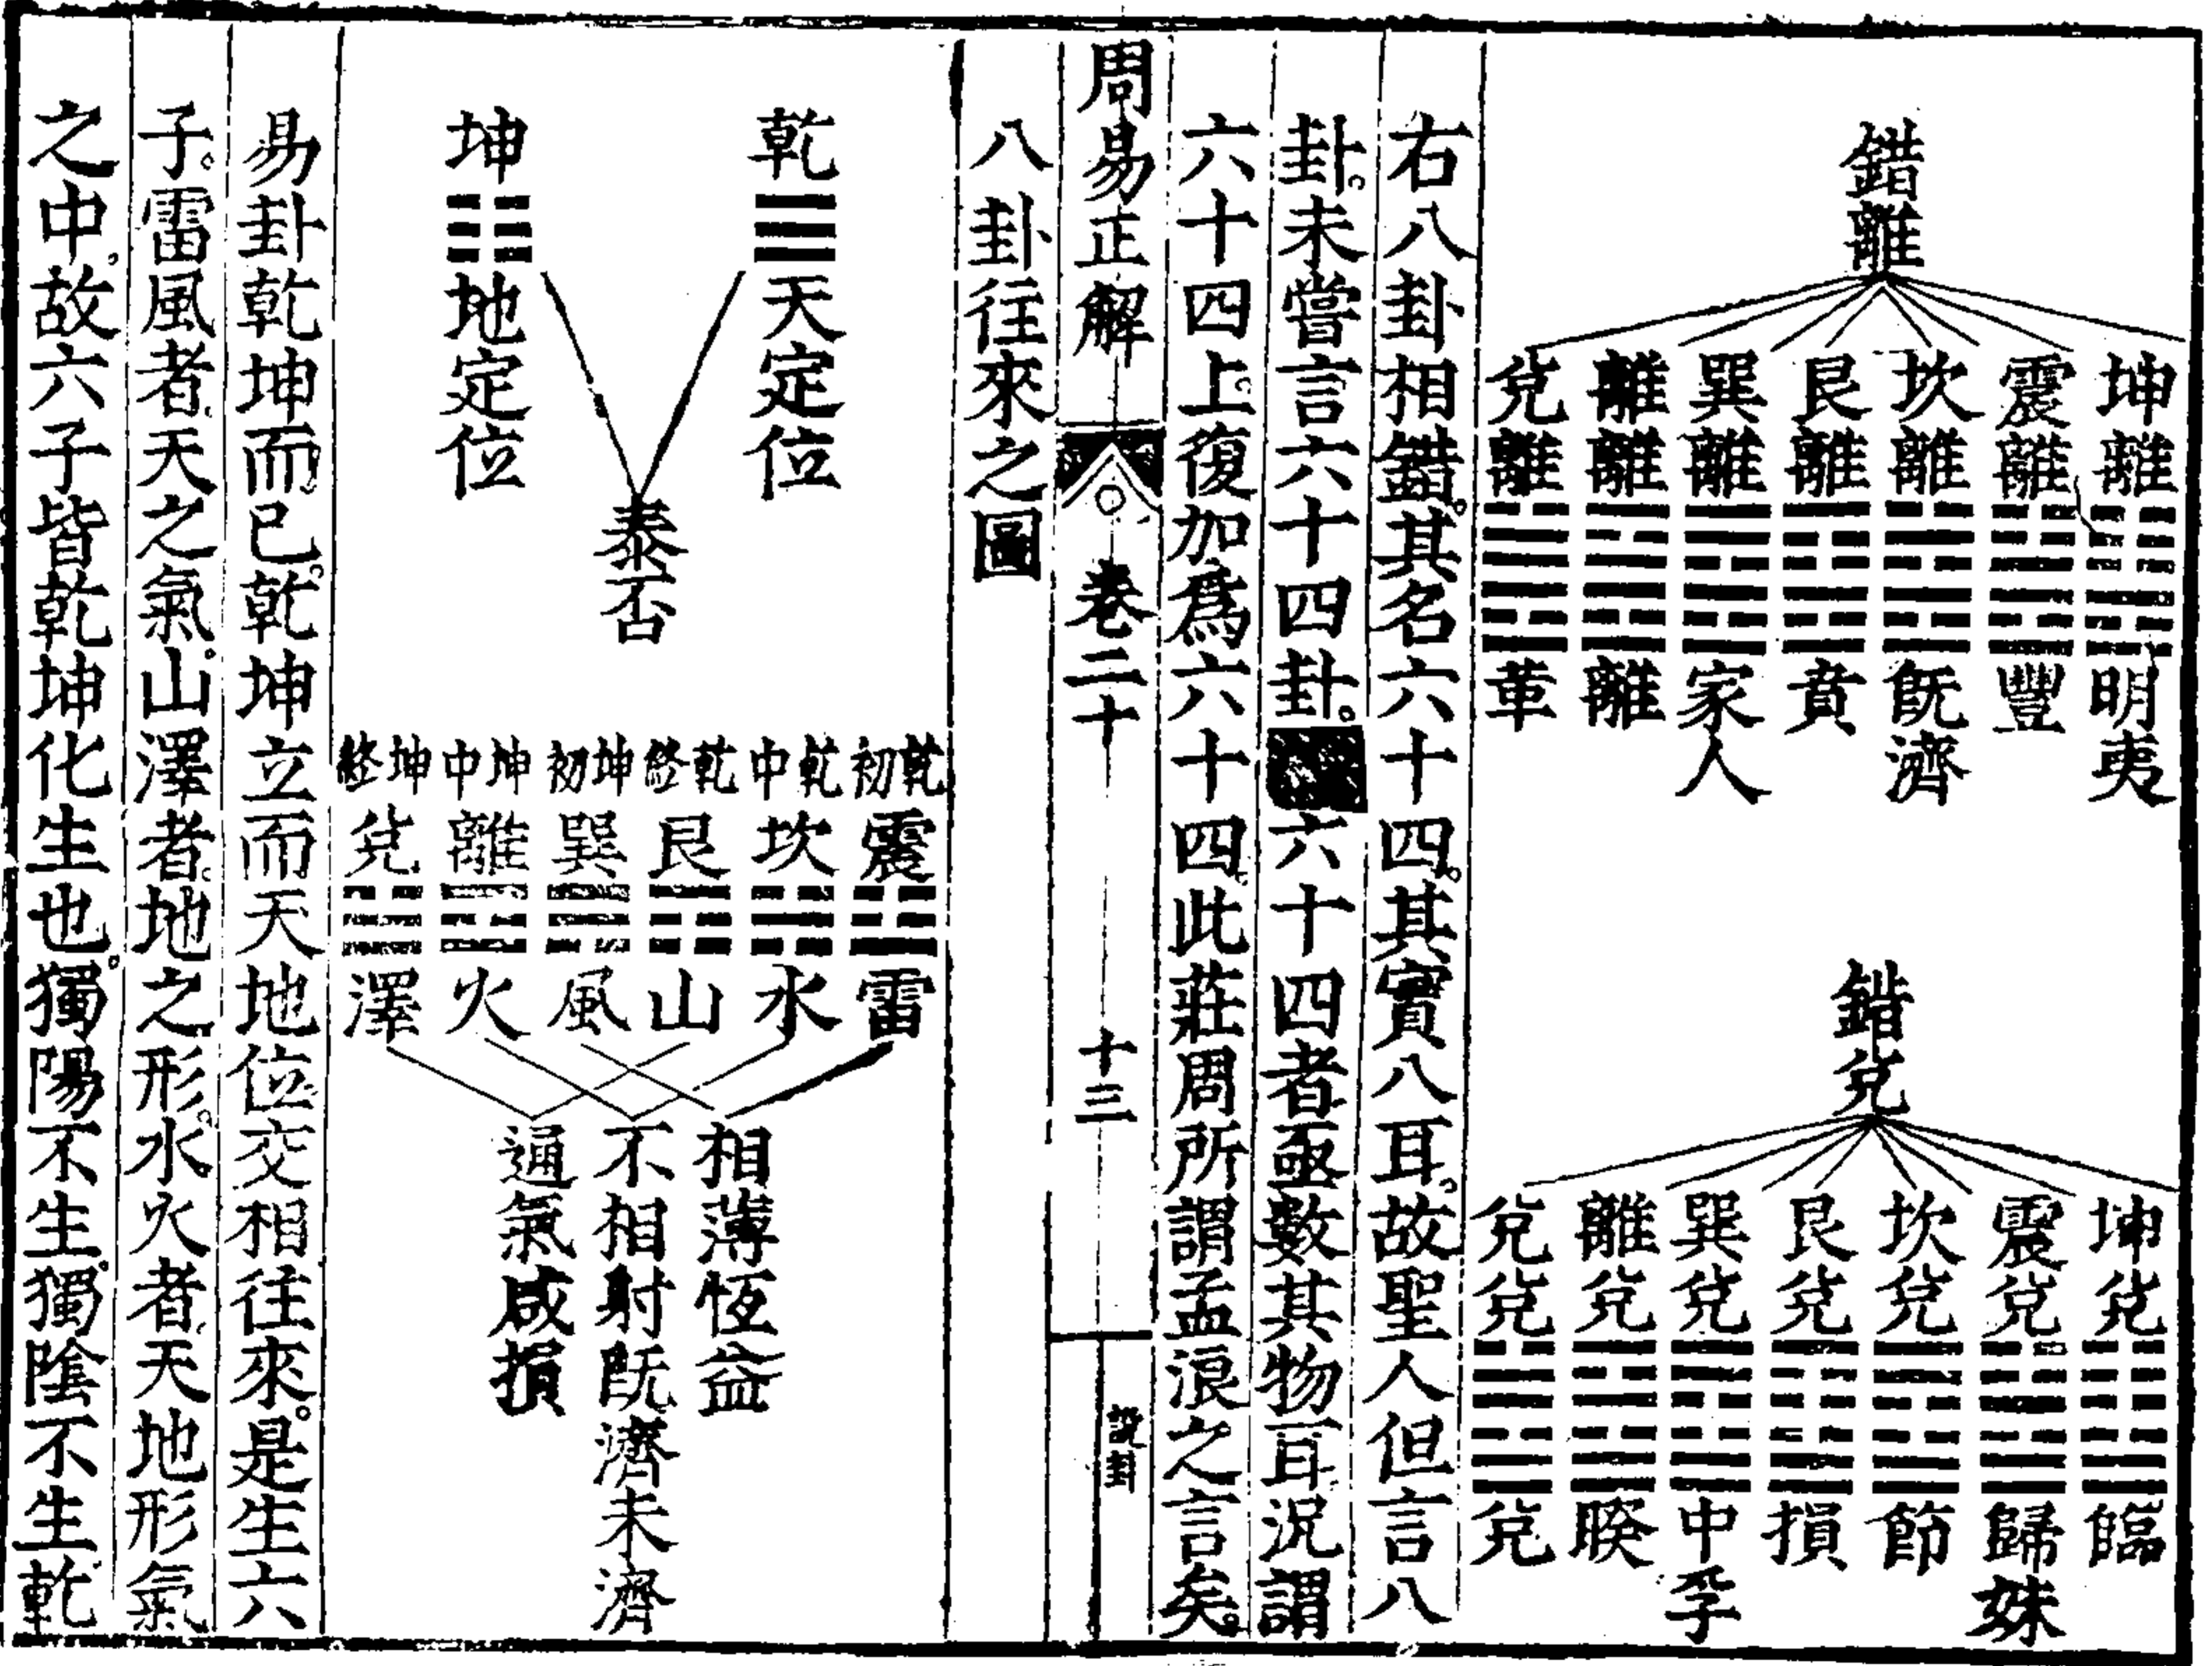 錯離
坤離明夷
震離豐
坎離旣濟
艮離賁
巽離家人
離離離
兌離革
錯兌
坤兌臨
震兌歸妹
坎兌節
艮兌損
巽兌中孚
離兌睽
兌兌兌
右八卦相錯。其名六十四。其實八耳。故聖人但言八
卦。未嘗言六十四卦。六十四者亟數其物耳況謂
六十四上。復加爲六十四。此莊周所謂孟浪之言矣。
周易正解 卷二十 十三 說卦
八卦往來之圖
乾天定位
坤地定位
泰否
乾初震雷
乾中坎水
乾終艮山
坤初巽風
坤中離火
坤終兌澤
相薄恆益
不相射旣濟未濟
通氣咸損
易卦乾坤而已。乾坤立而天地位交相往來。是生六
子。雷風者。天之氣。山澤者。地之形。水火者。天地形氣
之中。故六子皆乾坤化生也。獨陽不生。獨陰不生。乾